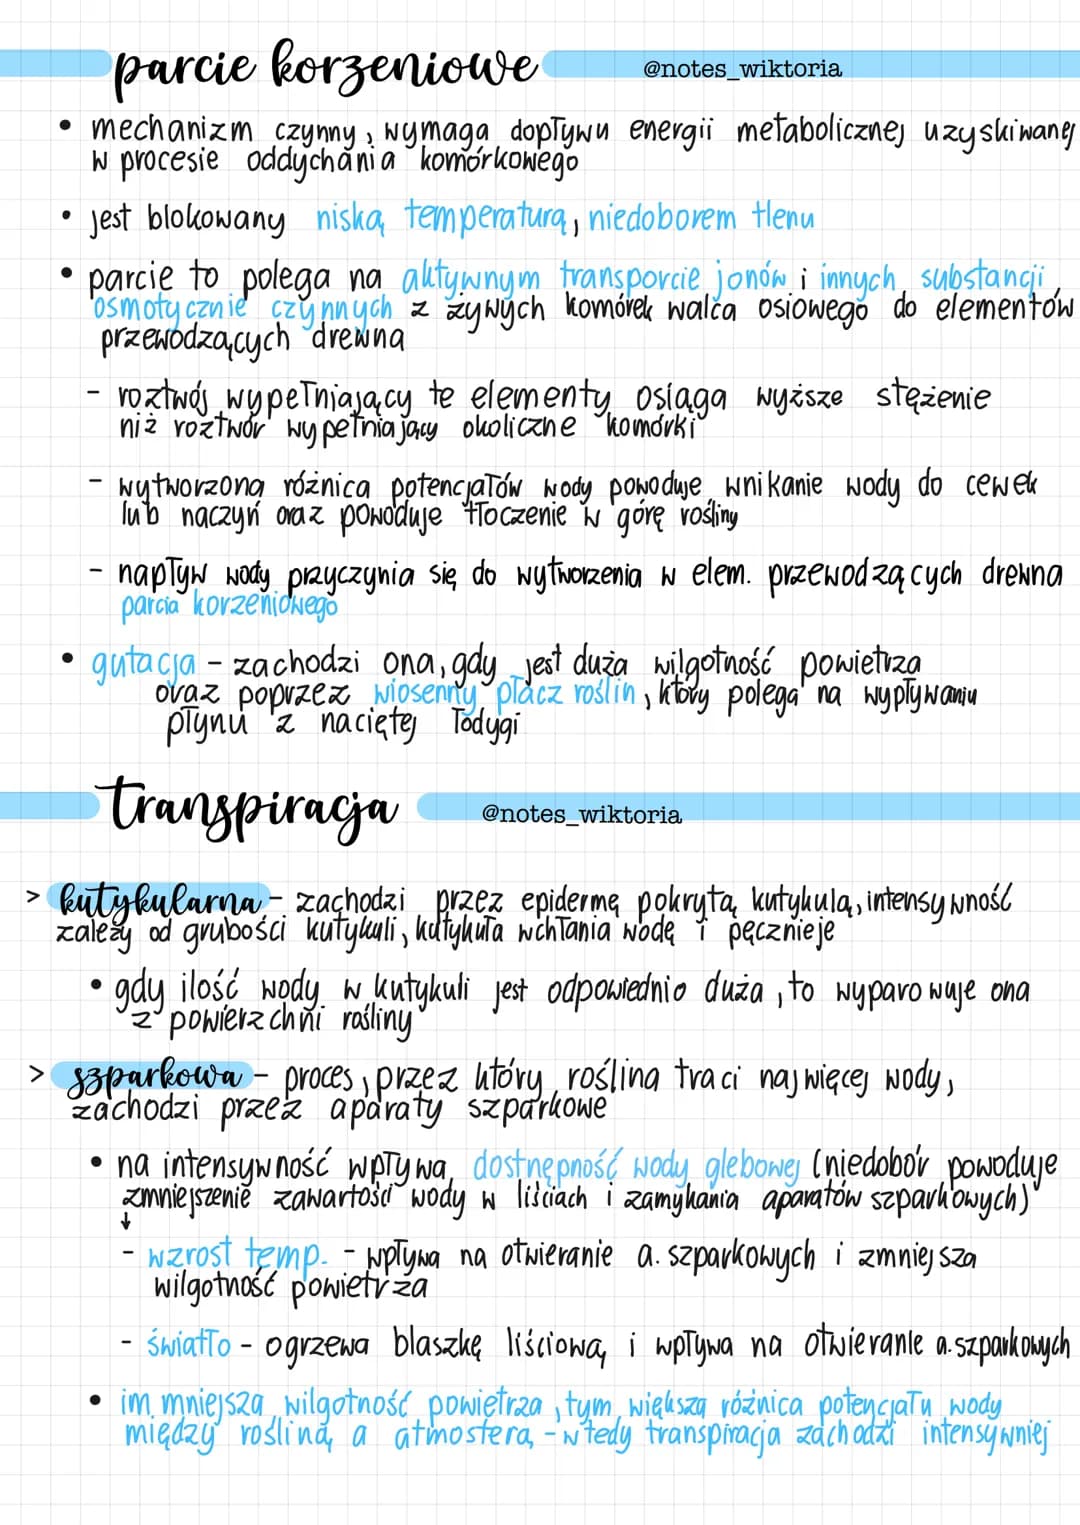 parcie korzeniowe
@notes_wiktoria
• mechanizm czynny, wymaga dopływu energii metabolicznej uzyskiwanej
w procesie oddychania komórkowego
• jest blokowany niską temperaturą, niedoborem tlenu
• parcie to polega na aktywnym transporcie jonów i innych substancji
osmotycznie czynnych z żywych komórek walca osiowego do elementów
przewodzących drewna
- roztwój wypełniający te elementy osiąga wyższe stężenie
niż roztwór wypełniający okoliczne komórki
- wytworzona różnica potencjałów wody powoduje wnikanie wody do cewek
lub naczyń oraz powoduje tłoczenie w górę rośliny
- napływ wody przyczynia się do wytworzenia w elem. przewodzących drewna
parcia korzeniowego
• gutacja - zachodzi ona, gdy jest duża wilgotność powietrza
oraz poprzez wiosenny płacz roślin, który polega na wypływaniu
płynu z naciętej łodygi
transpiracja
@notes_wiktoria
> kutykularna - zachodzi przez epidermę pokrytą kutykulą, intensywność
zależy od grubości kutykuli, kutykula wchłania wodę i pęcznieje
• gdy ilość wody w kutykuli jest odpowiednio duża, to wyparowuje ona
z powierzchni rośliny
> szparkowa - proces, przez który roślina traci najwięcej wody,
zachodzi przez aparaty szparkowe
• na intensywność wpływa dostnępność wody glebowej (niedobór powoduje
zmniejszenie zawartości wody w liściach i zamykania aparatów szparkowych)
↓
- wzrost temp. - wpływa na otwieranie a. szparkowych i zmniejsza
wilgotność powietrza
- światło - ogrzewa blaszkę liściową i wpływa na otwieranie a. szparkowych
• im mniejsza wilgotność powietrza, tym większa różnica potencjału wody
między rośliną a atmosferą - wtedy transpiracja zachodzi intensywniej